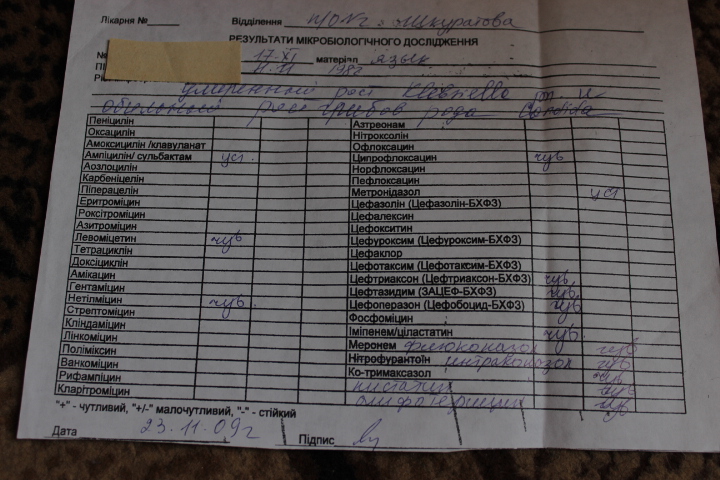 Лікарня № Відділення п/о №2 Шкуратова
РЕЗУЛЬТАТИ МІКРОБІОЛОГІЧНОГО ДОСЛІДЖЕННЯ
№ 17.XI матеріал язык
1987
умеренный рост Klebsiella
обильный рост грибов рода Candida
Пеніцилін
Оксацилін
Амоксицилін /клавуланат
Ампіцилін/ сульбактам уст.
Аозлоцилін
Карбеніцелін
Піперацелін
Еритроміцин
Рокситроміцин
Азитроміцин
Левоміцетин чув
Тетрациклін
Доксіциклін
Амікацин
Гентаміцин
Нетілміцин чув.
Стрептоміцин
Кліндаміцин
Лінкоміцин
Поліміксин
Ванкоміцин
Рифампіцин
Кларітроміцин
Азтреонам
Нітроксолін
Офлоксацин
Ципрофлоксацин чув
Норфлоксацин
Пефлоксацин
Метронідазол уст
Цефазолін (Цефазолін-БХФЗ)
Цефалексин
Цефокситин
Цефуроксим (Цефуроксим-БХФЗ)
Цефаклор
Цефотаксим (Цефотаксим-БХФЗ)
Цефтриаксон (Цефтриаксон-БХФЗ) чув
Цефтазидим (ЗАЦЕФ-БХФЗ) чув
Цефоперазон (Цефобоцид-БХФЗ) чув
Фосфоміцин
Іміпенем/циластатин чув.
Меронем флюконазол чув
Нітрофурантоїн интраконазол чув
Ко-тримаксазол чув
нистатин чув
амфотерицин чув
"+" - чутливий, "+/-" малочутливий, "-" - стійкий
Дата 23.11.09г Підпис